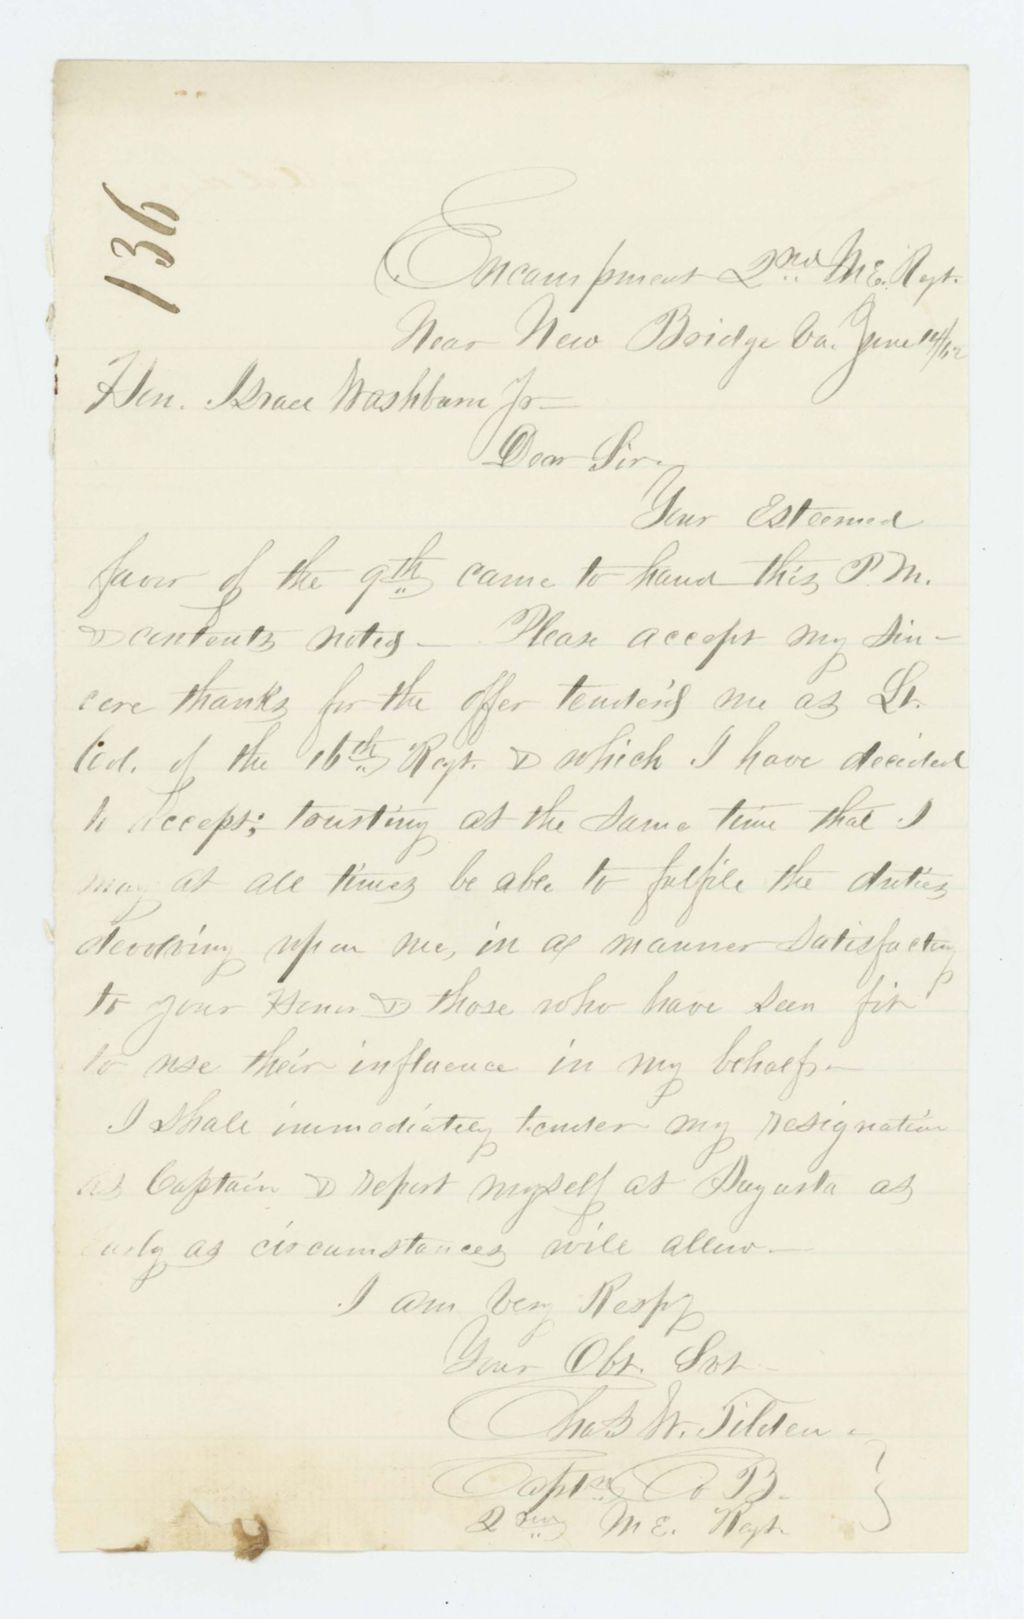 136
Encampment 2nd ME. Regt.
Near New Bridge Va. June 14/62
Hon. Israel Washburn Jr—
Dear Sir.
Your Esteemed
favor of the 9th came to hand this P.M.
& contents noted— Please accept my sin-
cere thanks for the offer tender'd me as Lt.
Col. of the 16th Regt. & which I have decided
to accept; trusting at the same time that I
may at all times be able to fulfile the duties
devolving upon me, in a manner satisfactory
to your Honor & those who have seen fit
to use their influence in my behalf.—
I shall immediately tender my resignation
as Captain & report myself at Augusta as
early as circumstances will allow.—
I am Very Respy
Your Obt. Svt—
Chas W. Tilden—
Captn Co B.
2nd ME. Regt.